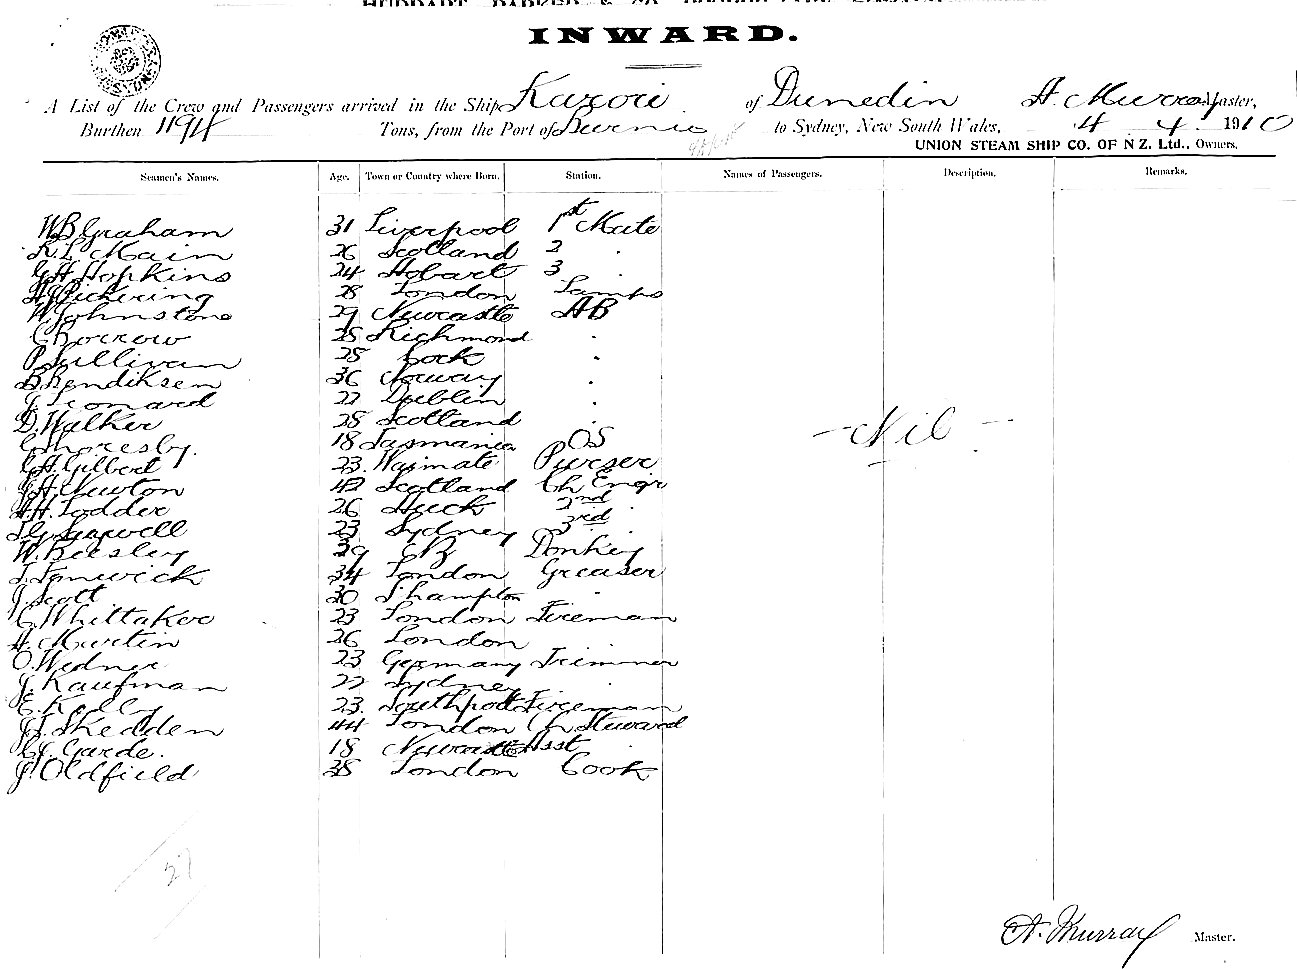 INWARD.
A List of the Crew and Passengers arrived in the Ship Karori of Dunedin A. Murray Master,
Burthen 1194 Tons, from the Port of Burnie to Sydney, New South Wales, 4 4 1910
UNION STEAM SHIP CO. OF N Z. Ltd., Owners.
Seamen's Names. Age. Town or Country where Born. Station. Names of Passengers. Description. Remarks.
W B Graham 31 Liverpool 1st Mate
R. L. Main 26 Scotland 2 .
G H Hopkins 24 Hobart 3 .
A J Pickering 28 London Lamps
W Johnstone 29 Newcastle AB
C Borrow 28 Richmond .
P Sullivan 28 Cork .
B. Bendiksen 36 Norway .
J Leonard 22 Dublin .
D. Walker 28 Scotland .
— Nil —
18 Tasmania OS
G. H. Gilbert 23 Waimate Purser
J H Newton 42 Scotland Ch Engr
H. H. Lodder 26 2nd .
23 Sydney 3rd .
W. Beesley 39 CB Donkey
34 London Greaser
J Scott 30 S'hampton
C. Whittaker 23 London Fireman
A. Martin 26 London .
O. Wedner 23 Germany Trimmer
J. Kaufman 22 Sydney .
E. Kelly 23 Southport Fireman
J. Skedden 44 London Ch Steward
C. J. Garde. 18 Newcastle Asst .
J. Oldfield 38 London Cook
A. Murray Master.